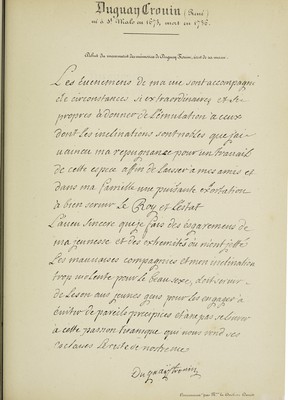 Duguay Trouin (René)
né à St Malo en 1673, mort en 1736.
Début du manuscrit des mémoires de Duguay Trouin, écrit de sa main.
Les évenemens de ma vie sont accompagné
de circonstances si extraordinaires et si
propres à donner de l'émulation à ceux
dont les inclinations sont nobles que j'ai
vaincu ma repugnance pour un travail
de cette espece affin de laisser à mes amis et
dans ma famille une puissante exortation
à bien servir Le Roy et l'estat
L'aveu sincere que je fais des egaremens de
ma jeunesse et des extremités ou m'ont jetté
Les mauvaises compagnies et mon inclination
trop violente pour le beau sexe, doit servir
de Leson aux jeunes gens pour les engager à
éviter de pareils precipices et a ne pas se livrer
à cette passion tiranique qui nous rend ses
esclaves le reste de nostre vie
Duguay Trouin
Communiqué par Mr